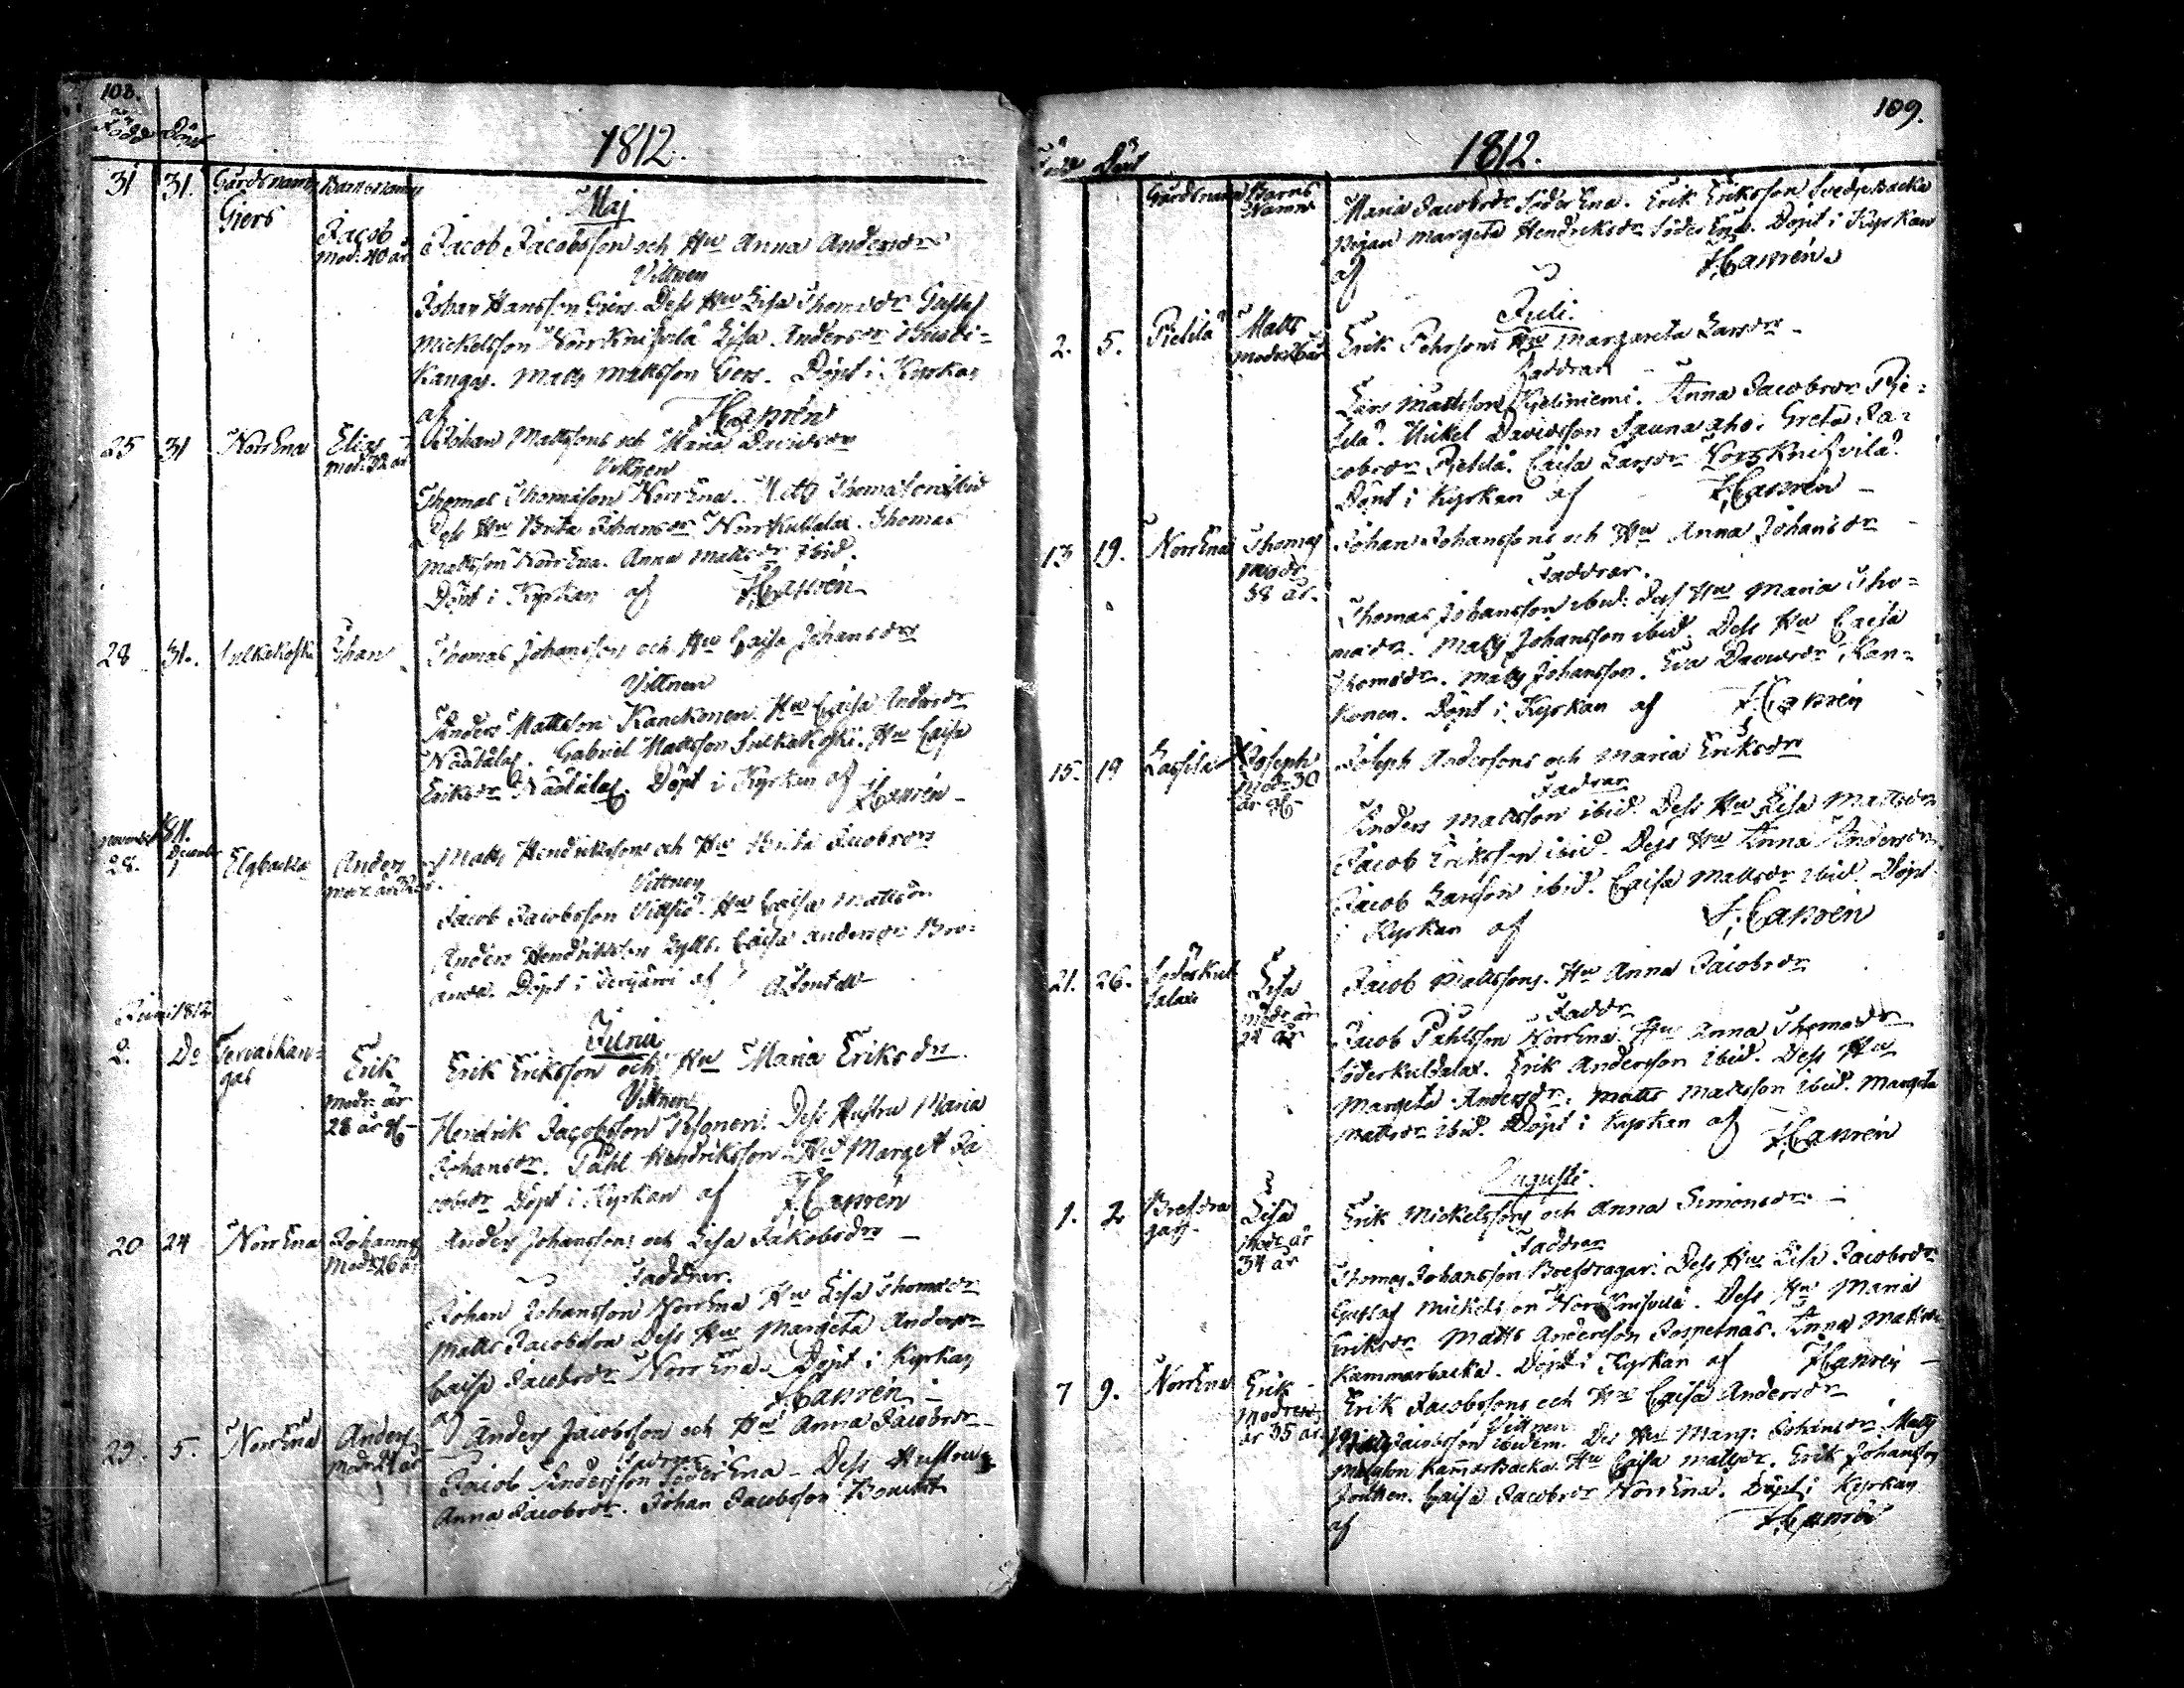 108.
Född Döpt
1812.
31 31. Gårdsnamn Barnsnamn
Maj
Giers Jacob Jacob Jacobsson och Hu Anna Andersdr
mod: 40 år
Vittnen
Johan Hansson Giers. Dess Hu Lisa Thomsdr Gustaf
Mickelsson Norr Knifvilä Lisa Andersdr
Kangas. Matts Mattsson Giers. Döpt i Kyrkan
af H: Capsén
25 31 NorrEna Elias Johan Mattsons och Maria Davidsdr
mod: 32 år
Vittnen
Thomas Thomasson NorrEna. Matts Thomasson ibid
Dess Hu Brita Johansdr NorrKuldalax. Thomas
Mattsson NorrEna. Anna Mattsdr ibid.
Döpt i Kyrkan af H: Capsén
28 31. Sulkakoski Johan Thomas Johansson och Hu Caisa Johansdr
Vittnen
Anders Mattsson Kanckonen. Hu Caisa Andersdr
Näätälä. Gabriel Mattsson Sulkakoski. Hu Caisa
Eriksdr Näätälä. Döpt i Kyrkan af H: Capsén
November 1811. December
28. 1 Elgbacka Anders Matts Hendrikssons och Hu Brita Jacobsdr
Vittnen
Jacob Jacobsson Vittsiö. Hu Caisa Mattsdr.
Anders Hendriksson Lytts. Caisa Andersdr Bro-
anda. Döpt i Terijärvi af A
Juni 1812.
Junii
2. Do Tervaskan- Erik Erik Eriksson och Hu Maria Eriksdr
gas
modr: är
28 år
Vittnen
Hendrik Jacobsson Pesonen. Dess Hustru Maria
Johansdr. Påhl Hendriksson Hu Marget Ja
cobsdr Döpt i Kyrkan af H: Capsén
20 24 NorrEna Johannes Anders Johanssons och Lisa Jakobsdr
Mod: 26 år
Faddrar.
Johan Johansson NorrEna Hu Lisa Thomsdr
Matts Jacobsson Dess Hu Margeta Andersdr
Caisa Jacobsdr NorrEna. Döpt i Kyrkan
af H: Capsén
29. 5. NorrEna Anders Anders Jacobsson och Hu Anna Jacobsdr
modr 24 år
Faddrar
Jacob Andersson SöderEna. Dess Hustru
Anna Jacobsdr. Johan Jacobsson
109.
Född Döpt
1812.
Gårdsnamn Barns Namn
Maria Jacobsdr SöderEna. Erik Eriksson Svedjebacka
Pigan Margeta Hendriksdr SöderEna. Döpt i Kyrkan
af H: Capsén
Juli.
2. 5. Pielilä Matts Erik Pehrsons Hu Margareta Larsdr
modr 26 år
Faddrar
Lars Mattsson Kieliniemi. Anna Jacobsdr Pie-
lilä. Mickel Davidsson Saunaaho. Greta Ja-
cobsdr Pielilä. Caisa Larsdr Norr Knifvilä.
Döpt i Kyrkan af H: Capsén
13 19. NorrEna Thomas Johan Johanssons och Hu Anna Johansdr
modr
38 år.
Faddrar.
Thomas Johansson ibid: dess Hu Maria Tho-
masdr. Matts Johansson ibid. Dess Hu Caisa
Thomsdr. Matts Johansson. Eva Davidsdr Kan-
konen. Döpt i Kyrkan af H: Capsén
15. 19 Lassila Joseph Joseph Anderssons och Maria Eriksdr
modr 30
år
Fadrar
Anders Mattsson ibid. Dess Hu Lisa Mattsdr
Jacob Eriksson ibid. Dess Hu Anna Andersdr
Jacob Larsson ibid. Caisa Mattsdr ibid. Döpt
i Kyrkan af H: Capsén
21. 26. Söderkul Lisa Jacob Mattssons. Hu Anna Jacobsdr
dalax
modr är
24 år
Faddr
Jacob Påhlsson NorrEna. Hu Anna Thomasdr
Söderkuldalax. Erik Andersson ibid. Dess Hu
Margeta Andersdr. Matts Mattsson ibid. Margeta
Mattsdr ibid. Döpt i Kyrkan af H: Capsén
Augusti.
1. 2 Brefdra Lisa Erik Mickelssons och Anna Simonsdr
gars
modr är
34 år
Faddrar
Thomas Johansson Brefdragar. Dess Hu Lisa Jacobsdr
Gustaf Mickelsson Norr Knifvilä. Dess Hu Maria
Eriksdr Matts Andersson Jospetnäs. Anna Mattsdr
Kammarbacka. Döpt i Kyrkan af H: Capsén
7 9. NorrEna Erik Erik Jacobssons och Hu Caisa Andersdr
Modren
är 35 år.
Vittnen
Matts Jacobsson ibidem. Des Hu Marg: Johansdr. Matts
Mattsson Kammarbacka. Hu Caisa Mattsdr. Erik Johansson
Caisa Jacobsdr NorrEna. Döpt i Kyrkan
af H: Capsén